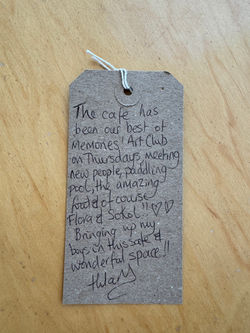 The cafe has
been our best of
Memories! Art Club
on Thursdays meeting
new people, paddling
pool, the amazing
food & of course
Flora & Sokol!! ♡♡
Bringing up my
boys in this safe &
wonderful space!!